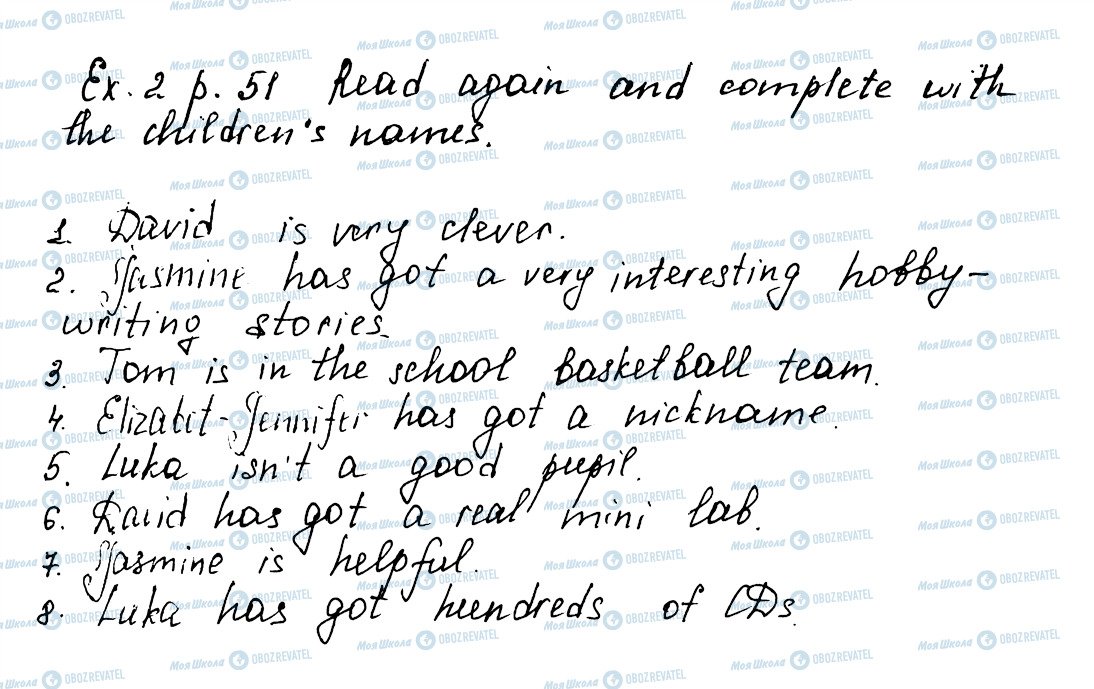 Ex. 2 p. 51 Read again and complete with
the children's names.
1. David is very clever.
2. Jasmine has got a very interesting hobby-
writing stories.
3. Tom is in the school basketball team.
4. Elizabet-Jennifer has got a nickname.
5. Luka isn't a good pupil.
6. David has got a real mini lab.
7. Jasmine is helpful.
8. Luka has got hundreds of CDs.